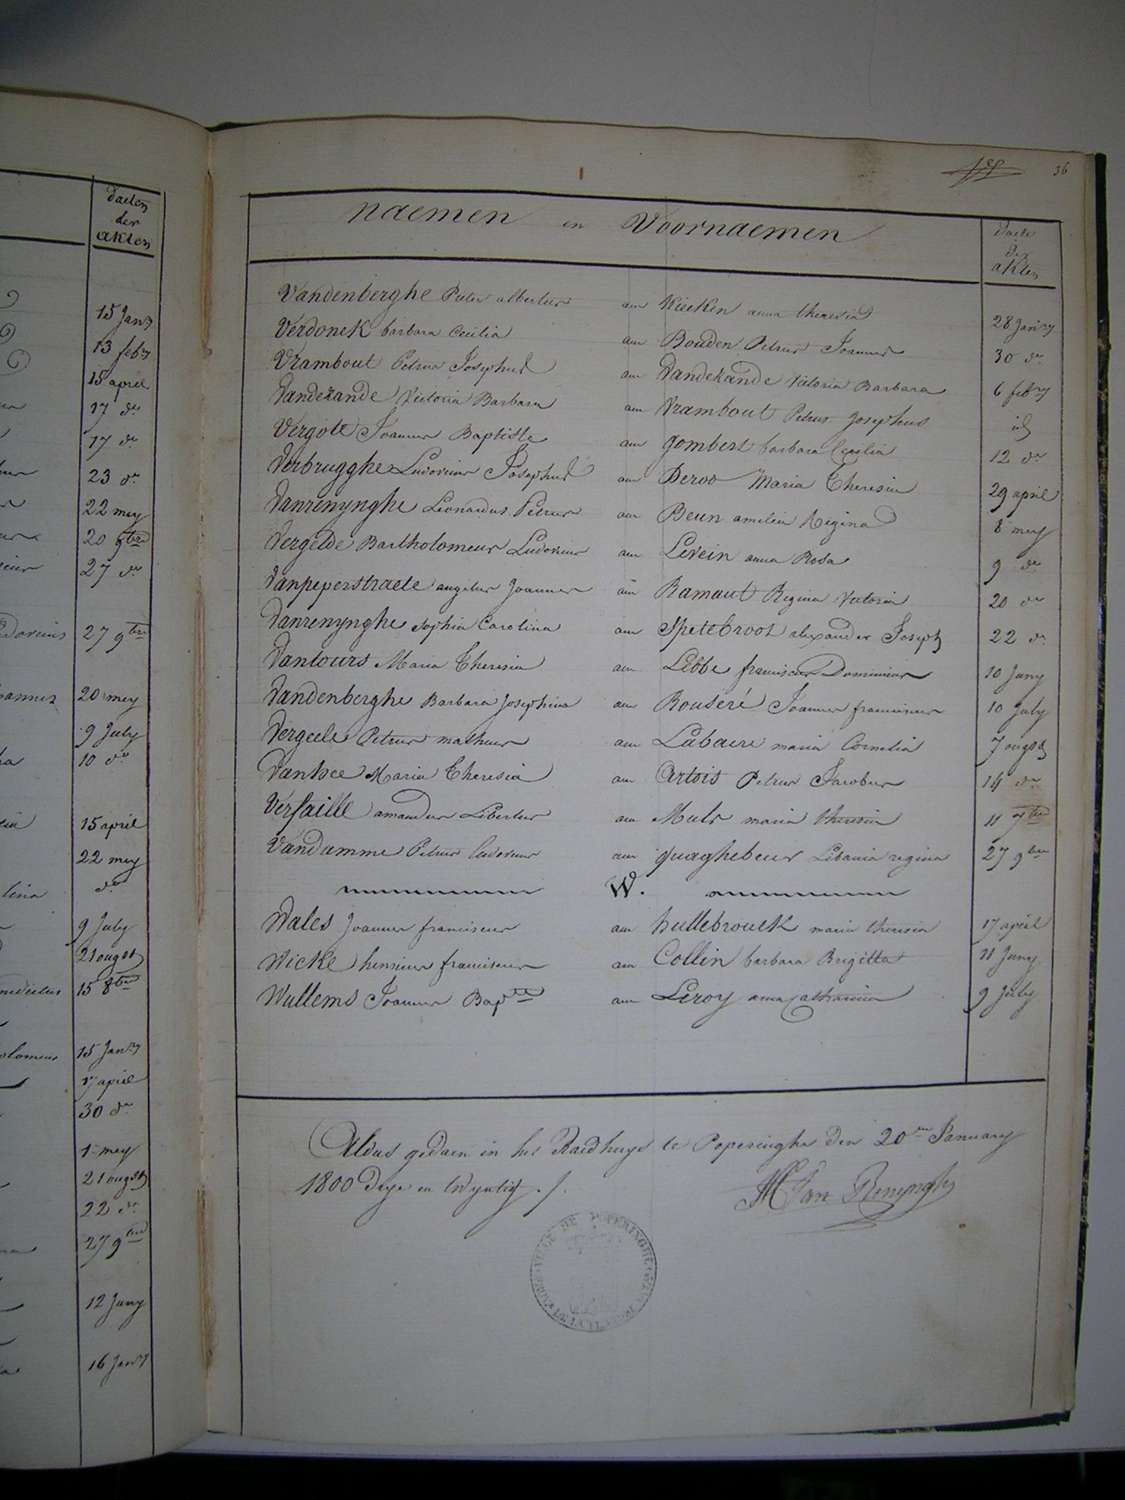 daeten
der
akten
15 Janry
13 febry
15 april
17 do
17 do
23 do
22 mey
20 9bre
27 do
27 9bre
20 mey
9 July
10 do
15 april
22 mey
do
9 July
21 ougst
15 8bre
15 Janry
17 april
30 do
1 mey
21 ougst
22 do
27 9bre
12 Juny
16 Janry
36
naemen en Voornaemen
daete
der
akten
Vandenberghe Pieter albertus aen Kiecken anna theresia 28 Janry
Verdonck barbara Cecilia aen Bouden Petrus Joannes 30 do
Vrambout Petrus Josephus aen Vandezande Victoria Barbara 6 febry
Vandezande Victoria Barbara aen Vrambout Petrus Josephus id
Vergote Joannes Baptiste aen Gombert barbara Cecilia 12 do
Verbrugghe Ludovicus Josephus aen Deroo Maria Theresia 29 april
Vanrenynghe Leonardus Petrus aen Beun amelia Regina 8 mey
Vergelde Bartholomeus Ludovicus aen Levein anna Rosa 9 do
Vanpeperstraete angelus Joannes aen Ramaut Regina Victoria 20 do
Vanrenynghe Sophia Carolina aen Spetebroot alexander Joseph 22 do
Vantours Maria Theresia aen Lebbe franciscus Dominicus 10 Juny
Vandenberghe Barbara Josephina aen Rouseré Joannes franciscus 10 July
Vergeele Petrus matheus aen Labaere maria Cornelia 7 ougst
Vanhee Maria Theresia aen Artois Petrus Jacobus 14 do
Versaille amandus Libertus aen Muls maria theresia 11 7bre
Vandamme Petrus ludovicus aen quaghebeur Libania regina 27 9bre
W.
Wales Joannes franciscus aen hullebrouck maria theresia 17 april
Wicke henricus franciscus aen Collin barbara Brigitta 11 Juny
Wullems Joannes Bapte aen Leroy anna Catharina 9 July
Aldus gedaen in het Raedhuys te Poperinghe den 20en January
1800 drye en twyntig ./.
M Van Renynghe
VILLE DE POPERINGHE